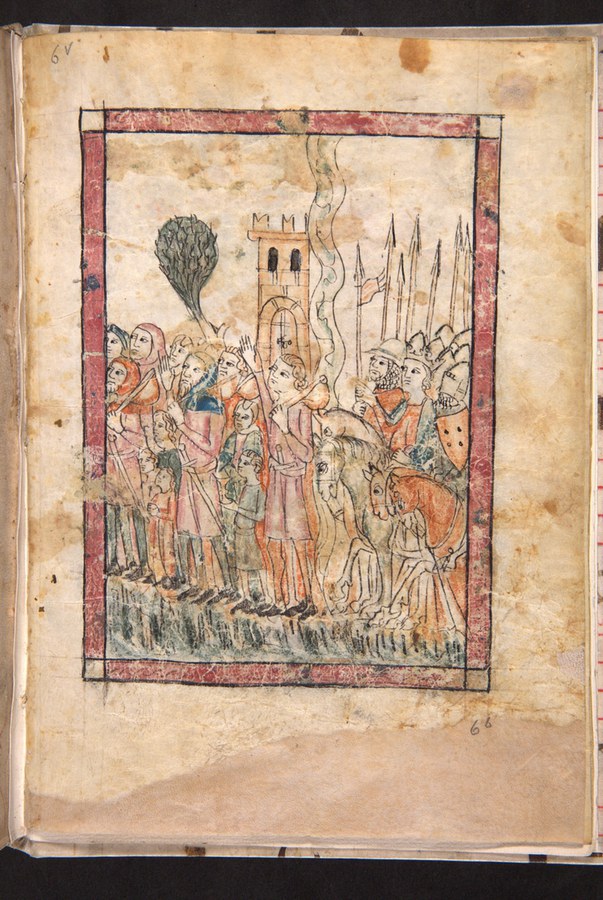 6v
66